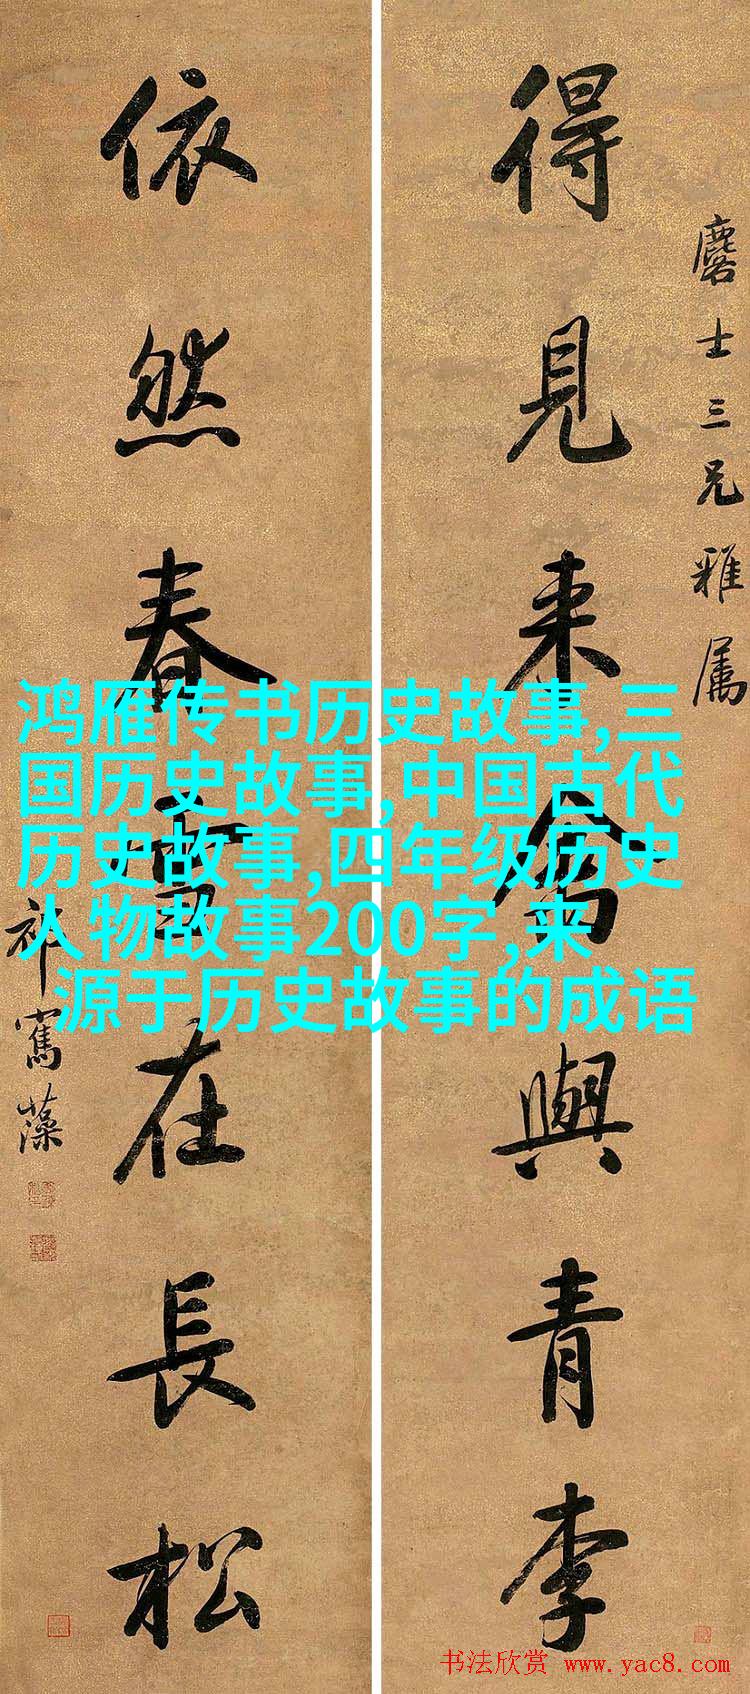 得見来禽與青李
麐士三兄雅属
依然春雪在長松
祁寯藻
鸿雁传书历史故事,三
国历史故事,中国古代
历史故事,四年级历史
人物故事200字,来
源于历史故事的成语
书法欣赏 www.yac8.com